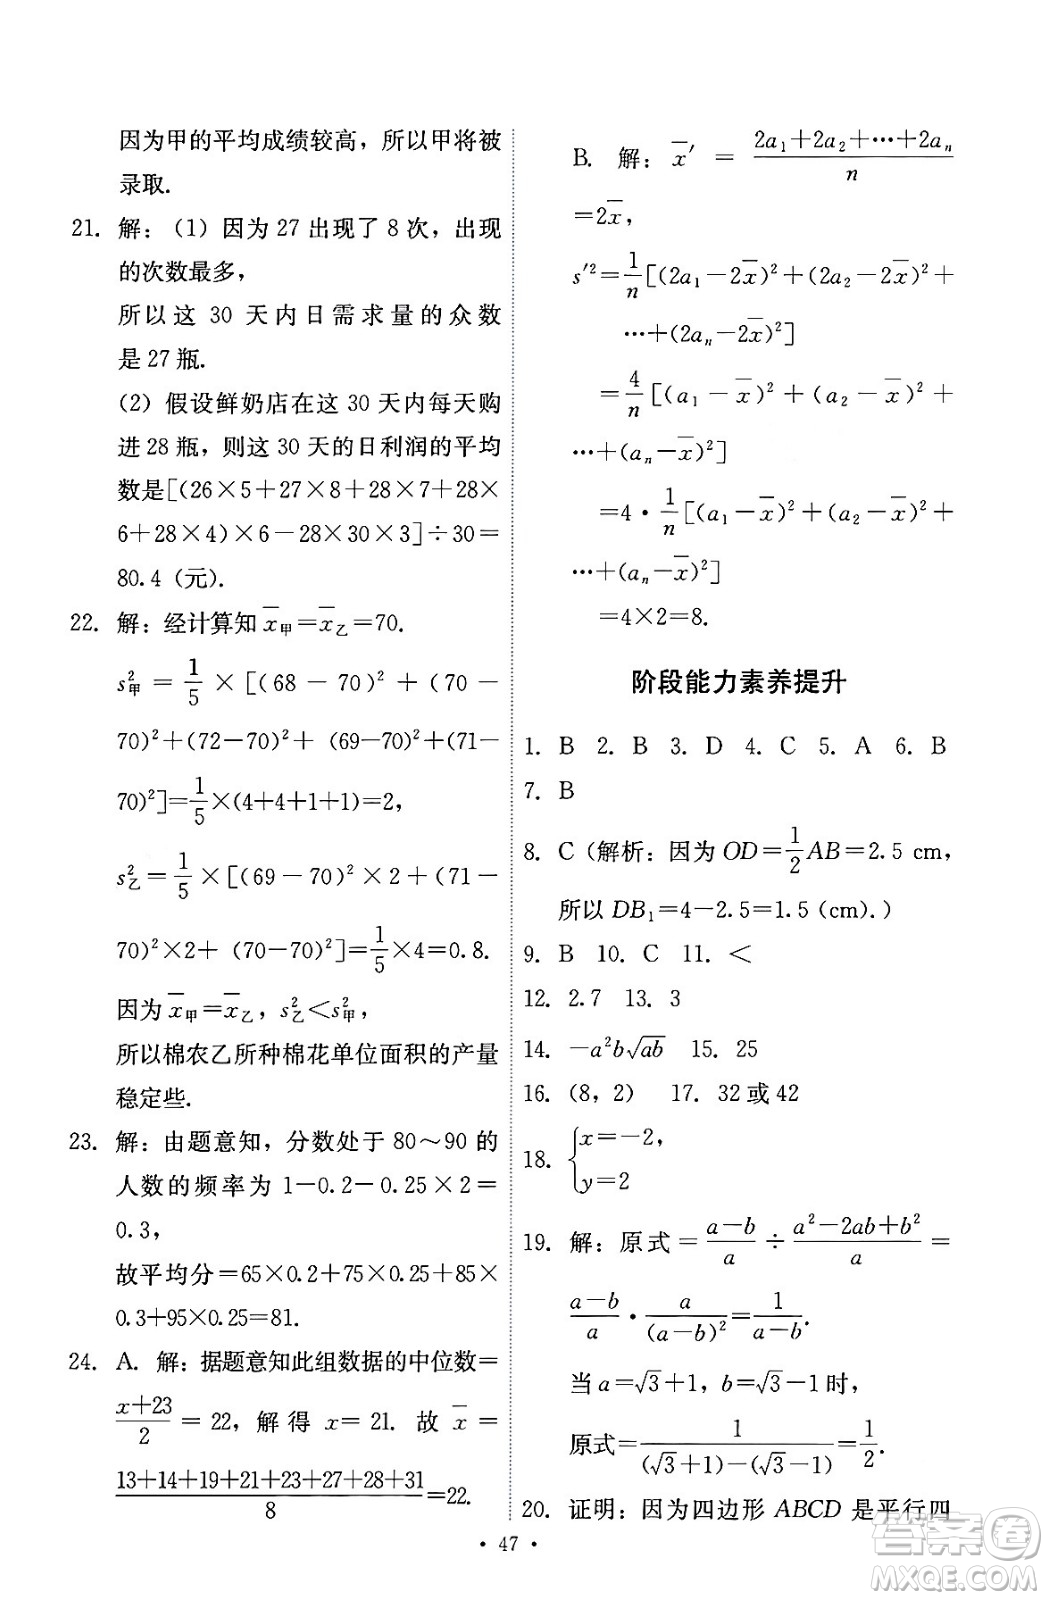 因为甲的平均成绩较高，所以甲将被
录取.
21. 解：（1）因为 27 出现了 8 次，出现
的次数最多，
所以这 30 天内日需求量的众数
是 27 瓶.
（2）假设鲜奶店在这 30 天内每天购
进 28 瓶，则这 30 天的日利润的平均
数是[(26×5+27×8+28×7+28×
6+28×4)×6－28×30×3]÷30=
80.4（元）.
22. 解：经计算知 x̄甲=x̄乙=70.
s²甲 = 1/5 ×[(68－70)²+(70－
70)²+(72－70)²+ (69-70)²+(71-
70)²]=1/5×(4+4+1+1)=2，
s²乙 = 1/5 ×[(69－70)²×2+(71－
70)²×2+ (70-70)²]=1/5×4=0.8.
因为 x̄甲=x̄乙，s²乙<s²甲，
所以棉农乙所种棉花单位面积的产量
稳定些.
23. 解：由题意知，分数处于 80～90 的
人数的频率为 1－0.2－0.25×2=
0.3，
故平均分=65×0.2+75×0.25+85×
0.3+95×0.25=81.
24. A. 解：据题意知此组数据的中位数=
(x+23)/2 = 22，解得 x=21. 故 x̄ =
(13+14+19+21+23+27+28+31)/8=22.
B. 解：x̄′ = (2a₁+2a₂+⋯+2aₙ)/n
=2x̄，
s′²=1/n[(2a₁－2x̄)²+(2a₂－2x̄)²+
⋯+(2aₙ-2x̄)²]
=4/n[(a₁－x̄)²+(a₂－x̄)²+
⋯+(aₙ-x̄)²]
=4·1/n[(a₁－x̄)²+(a₂－x̄)²+
⋯+(aₙ-x̄)²]
=4×2=8.
阶段能力素养提升
1. B 2. B 3. D 4. C 5. A 6. B
7. B
8. C（解析：因为 OD=1/2AB=2.5 cm，
所以 DB₁=4－2.5=1.5（cm）.）
9. B 10. C 11. <
12. 2.7 13. 3
14. －a²b√ab 15. 25
16.（8，2） 17. 32 或 42
18. {x=－2， y=2
19. 解：原式=(a－b)/a÷(a²－2ab+b²)/a=
(a－b)/a·a/(a－b)²=1/(a－b).
当 a=√3+1，b=√3－1 时，
原式=1/((√3+1)－(√3－1))=1/2.
20. 证明：因为四边形 ABCD 是平行四
• 47 •
答案圈
MXQE.COM